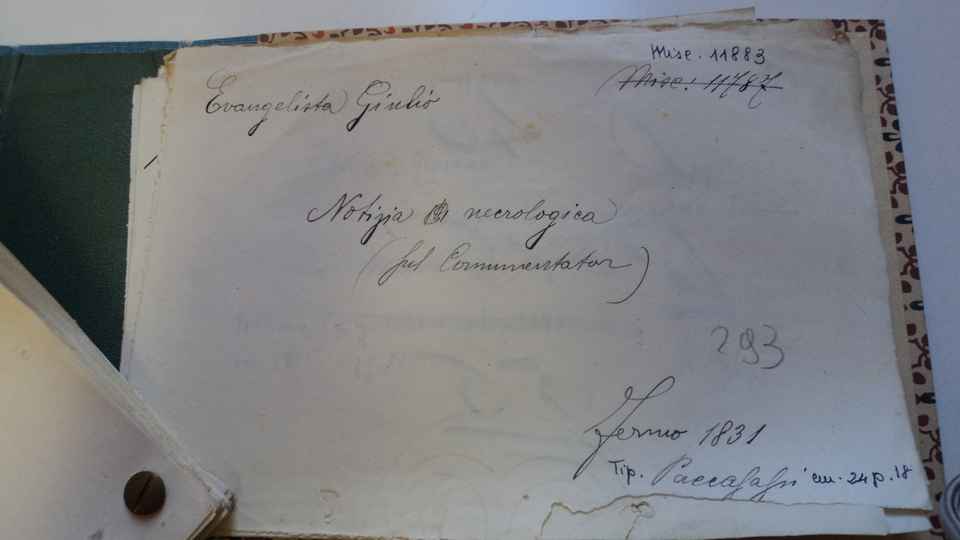 Misc. 11883
Misc. 11787
Evangelista Giulio
Notizia necrologica
(sul Commentator)
293
Fermo 1831
Tip. Paccasassi cm. 24 p. 18